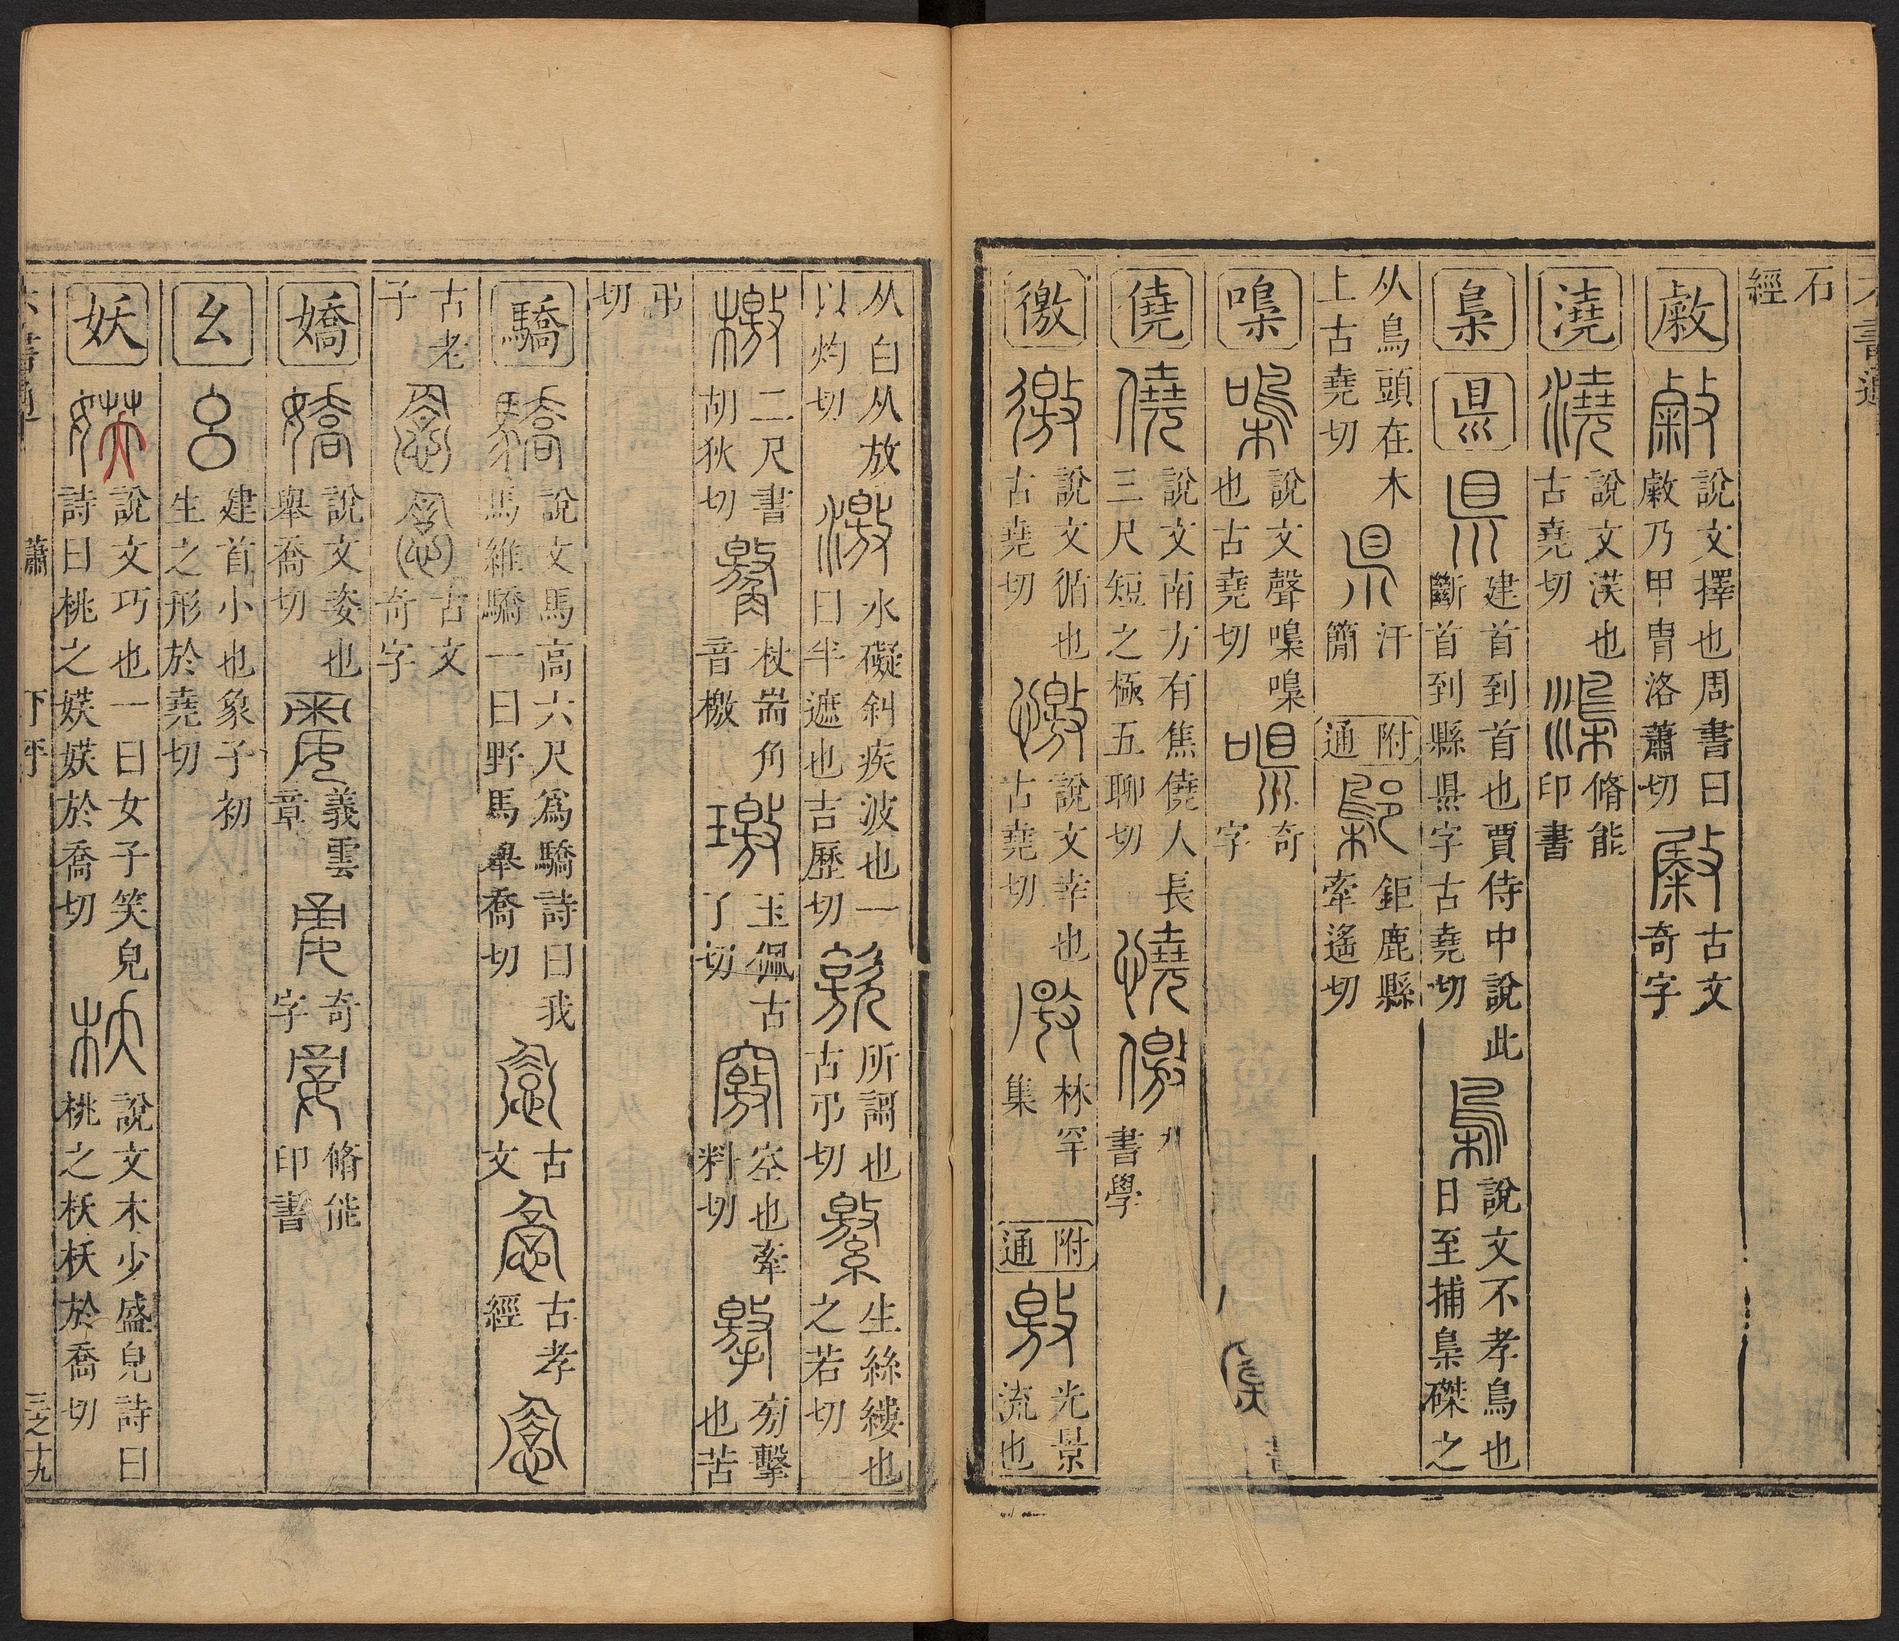 石經
敹 說文擇也周書曰敹乃甲胄洛蕭切 古文奇字
澆 說文𣵽也古堯切 脩能印書
梟 県 建首到首也賈侍中說此斷首到縣県字古堯切 說文不孝鳥也日至捕梟磔之
从鳥頭在木上古堯切 汗簡 附通 鉅鹿縣牽遙切
嘄 說文聲嘄嘄也古堯切 奇字
僥 說文南方有焦僥人長三尺短之極五聊切 書學
徼 說文循也古堯切 說文幸也古堯切 林罕集 附通 光景流也
从白从放以灼切 水礙斜疾波也一曰半遮也吉歷切 所謌也古弔切 生絲縷也之若切
二尺書胡狄切 杖耑角音檄 玉佩古了切 空也牽料切 㫄擊也苦
弔切
驕 說文馬高六尺爲驕詩曰我馬維驕一曰野馬舉喬切 古文 古孝經
古老子 古文奇字
嬌 說文姿也舉喬切 義雲章 奇字 脩能印書
幺 建首小也象子初生之形於堯切
妖 說文巧也一曰女子笑皃詩曰桃之媖媖於喬切 說文木少盛皃詩曰桃之枖枖於喬切
蕭 下平 三之十九